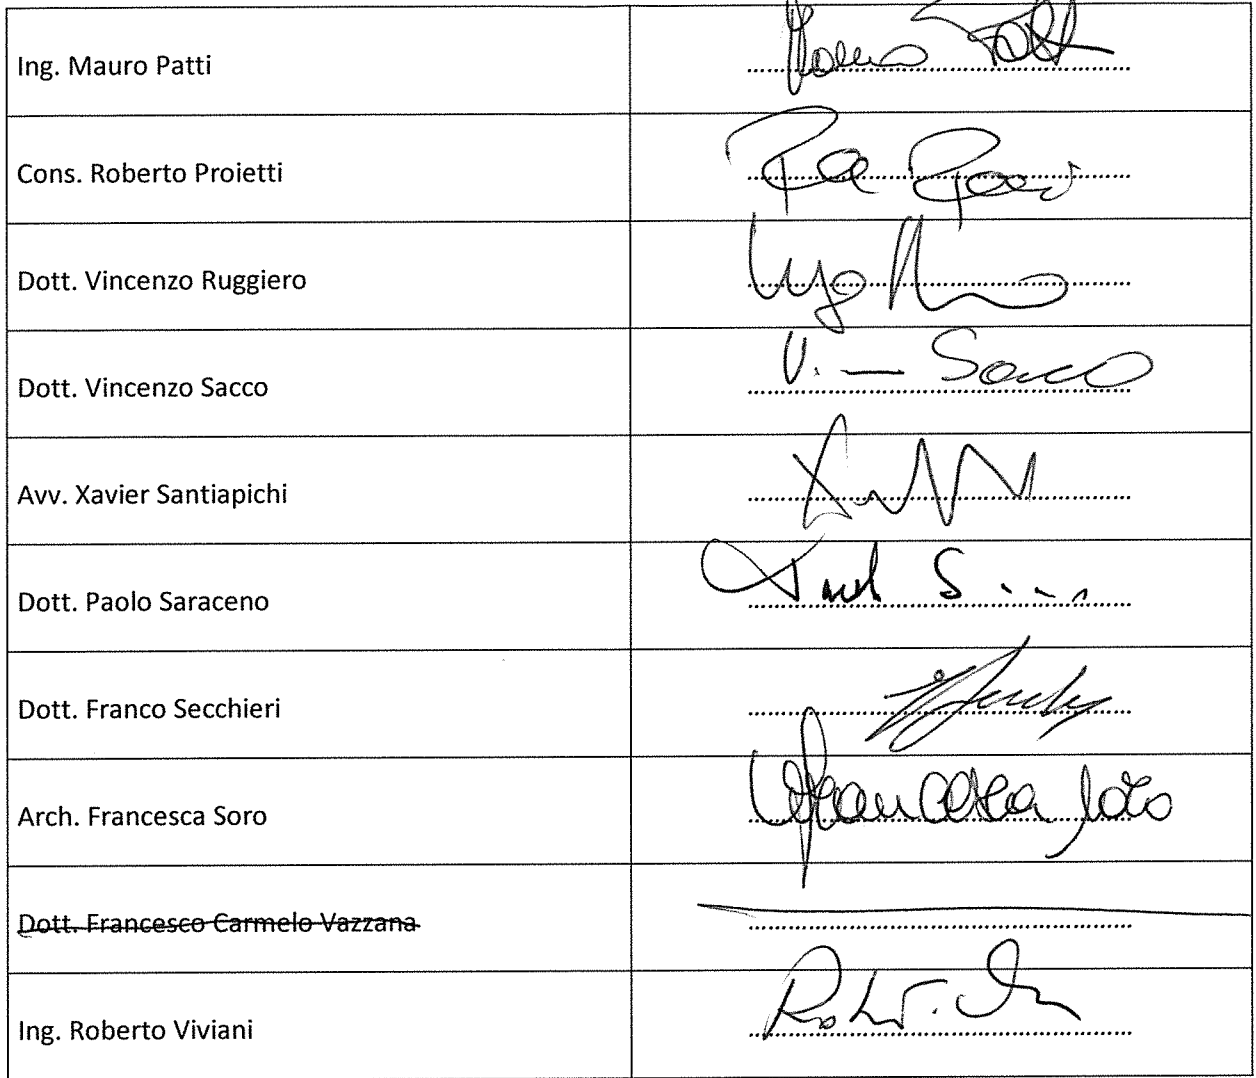 Ing. Mauro Patti
Cons. Roberto Proietti
Dott. Vincenzo Ruggiero
Dott. Vincenzo Sacco
V. Sacco
Avv. Xavier Santiapichi
Dott. Paolo Saraceno
Dott. Franco Secchieri
Arch. Francesca Soro
Francesca Soro
Dott. Francesco Carmelo Vazzana
Ing. Roberto Viviani